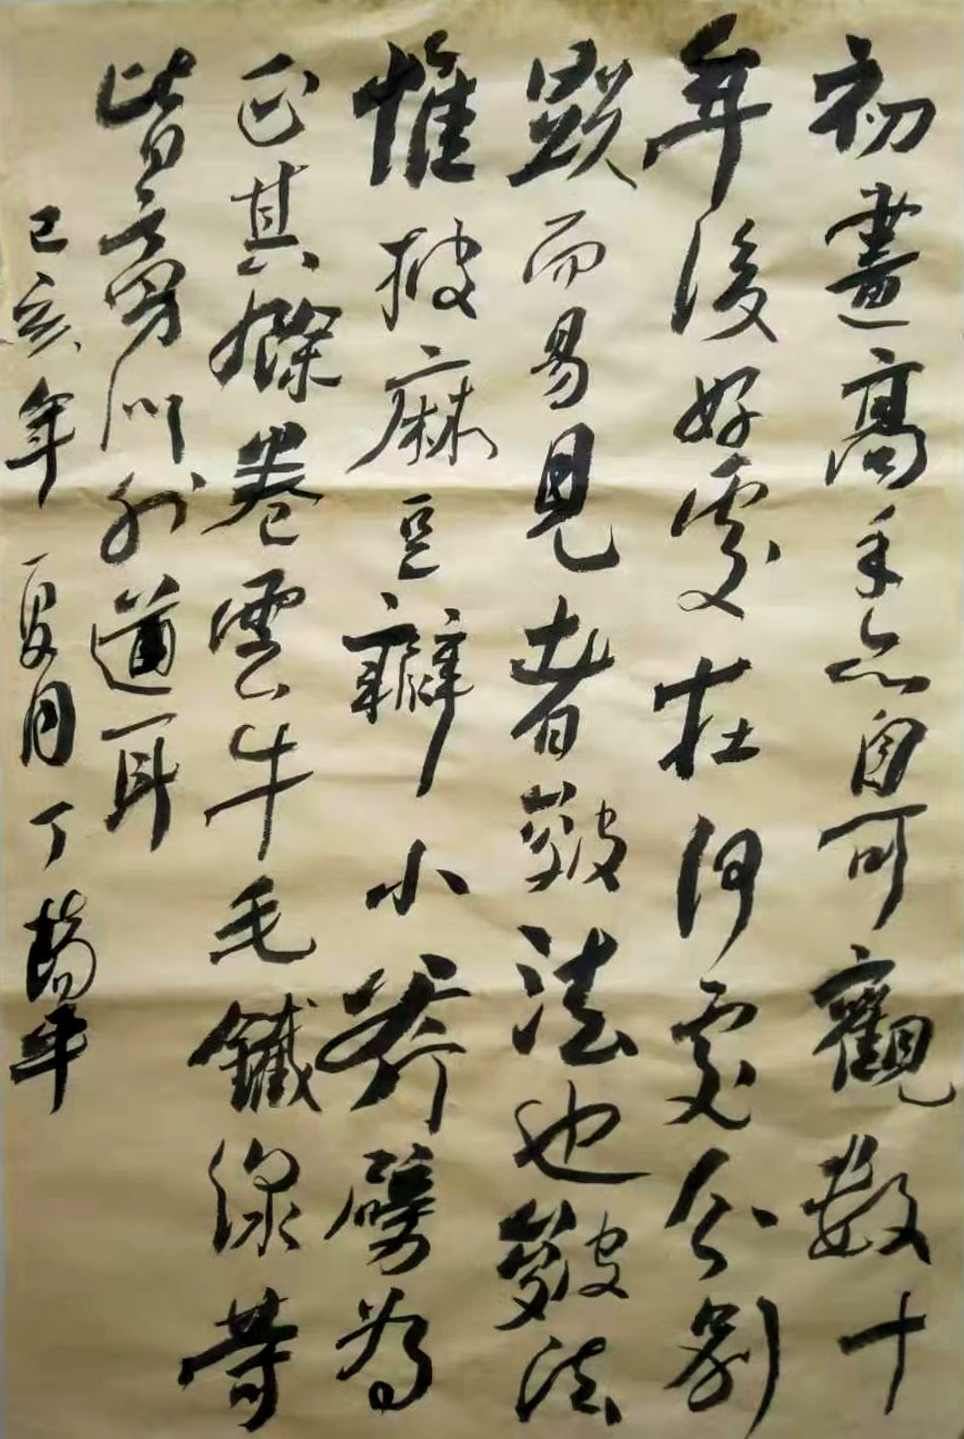 初畫高手亦自可觀數十
年後好處在何處分別
顯而易見者皴法也皴法
惟披麻豆瓣小斧劈為
正其餘卷雲牛毛鐵線等
皆旁門外道耳
己亥年夏月丁